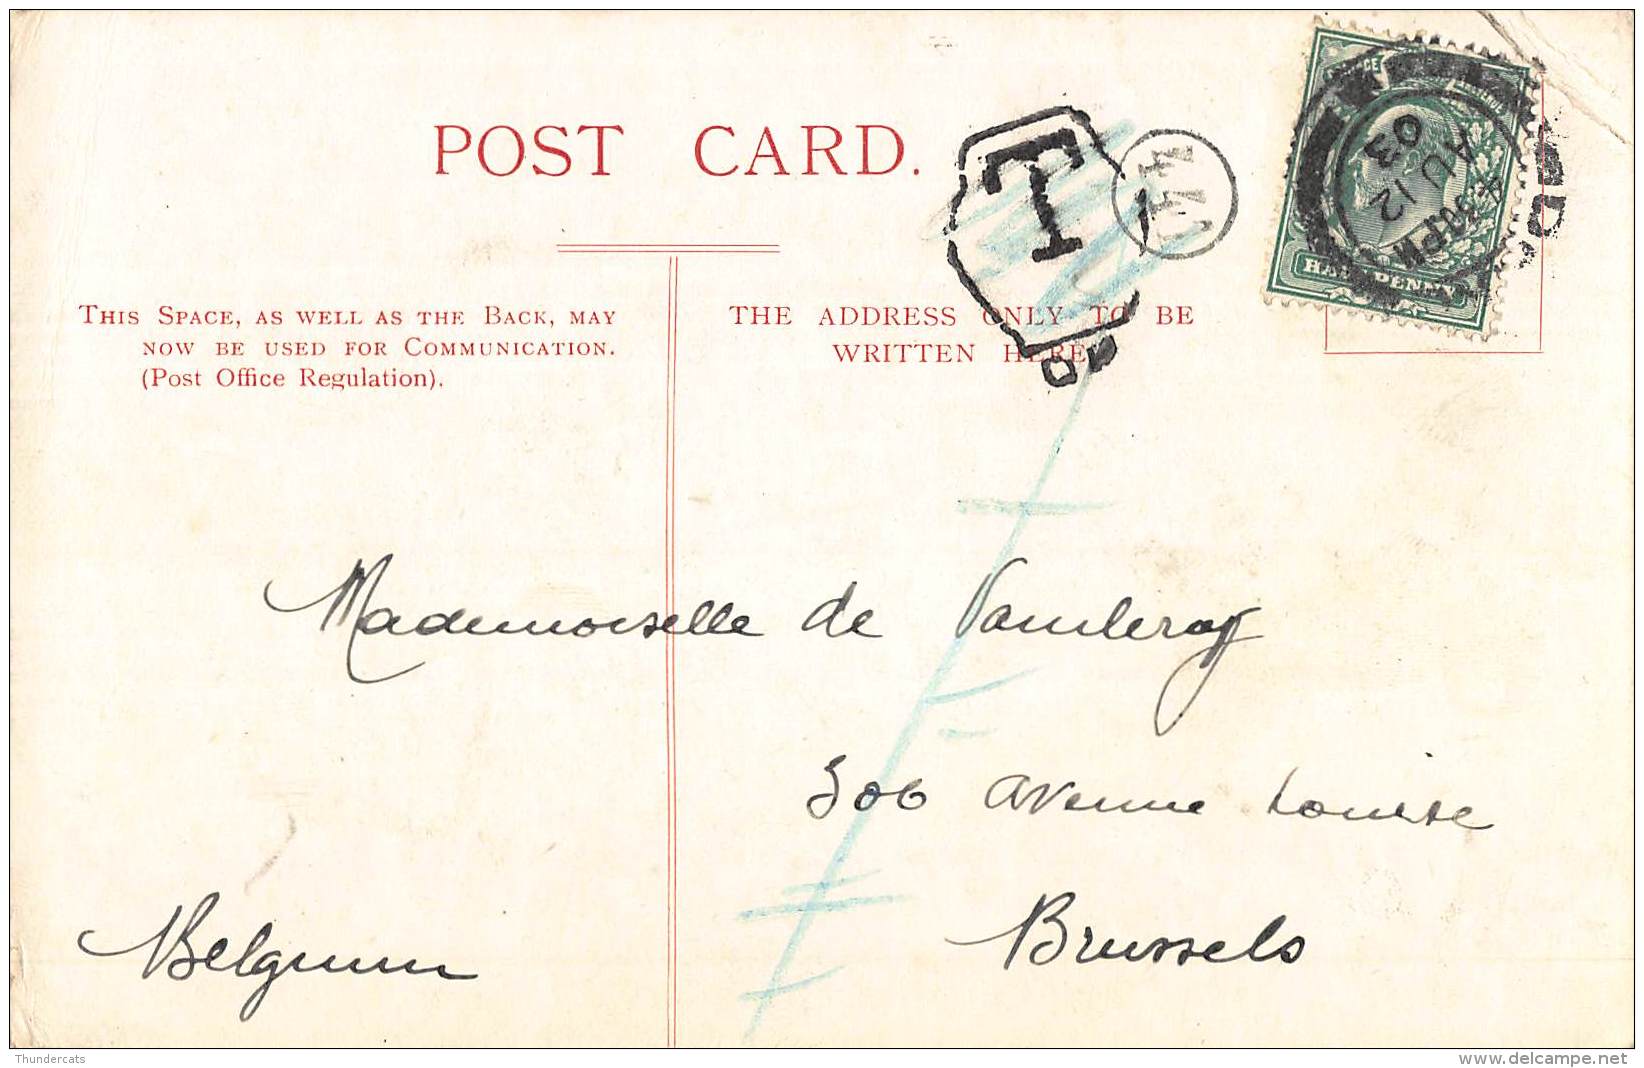 POST CARD.
THIS SPACE, AS WELL AS THE BACK, MAY
NOW BE USED FOR COMMUNICATION.
(Post Office Regulation).
THE ADDRESS ONLY TO BE
WRITTEN HERE
T
HALFPENNY
4.30PM
AU 12
03
Mademoiselle de
306 Avenue Louise
Brussels
Belgium
Thundercats
delcampe.net